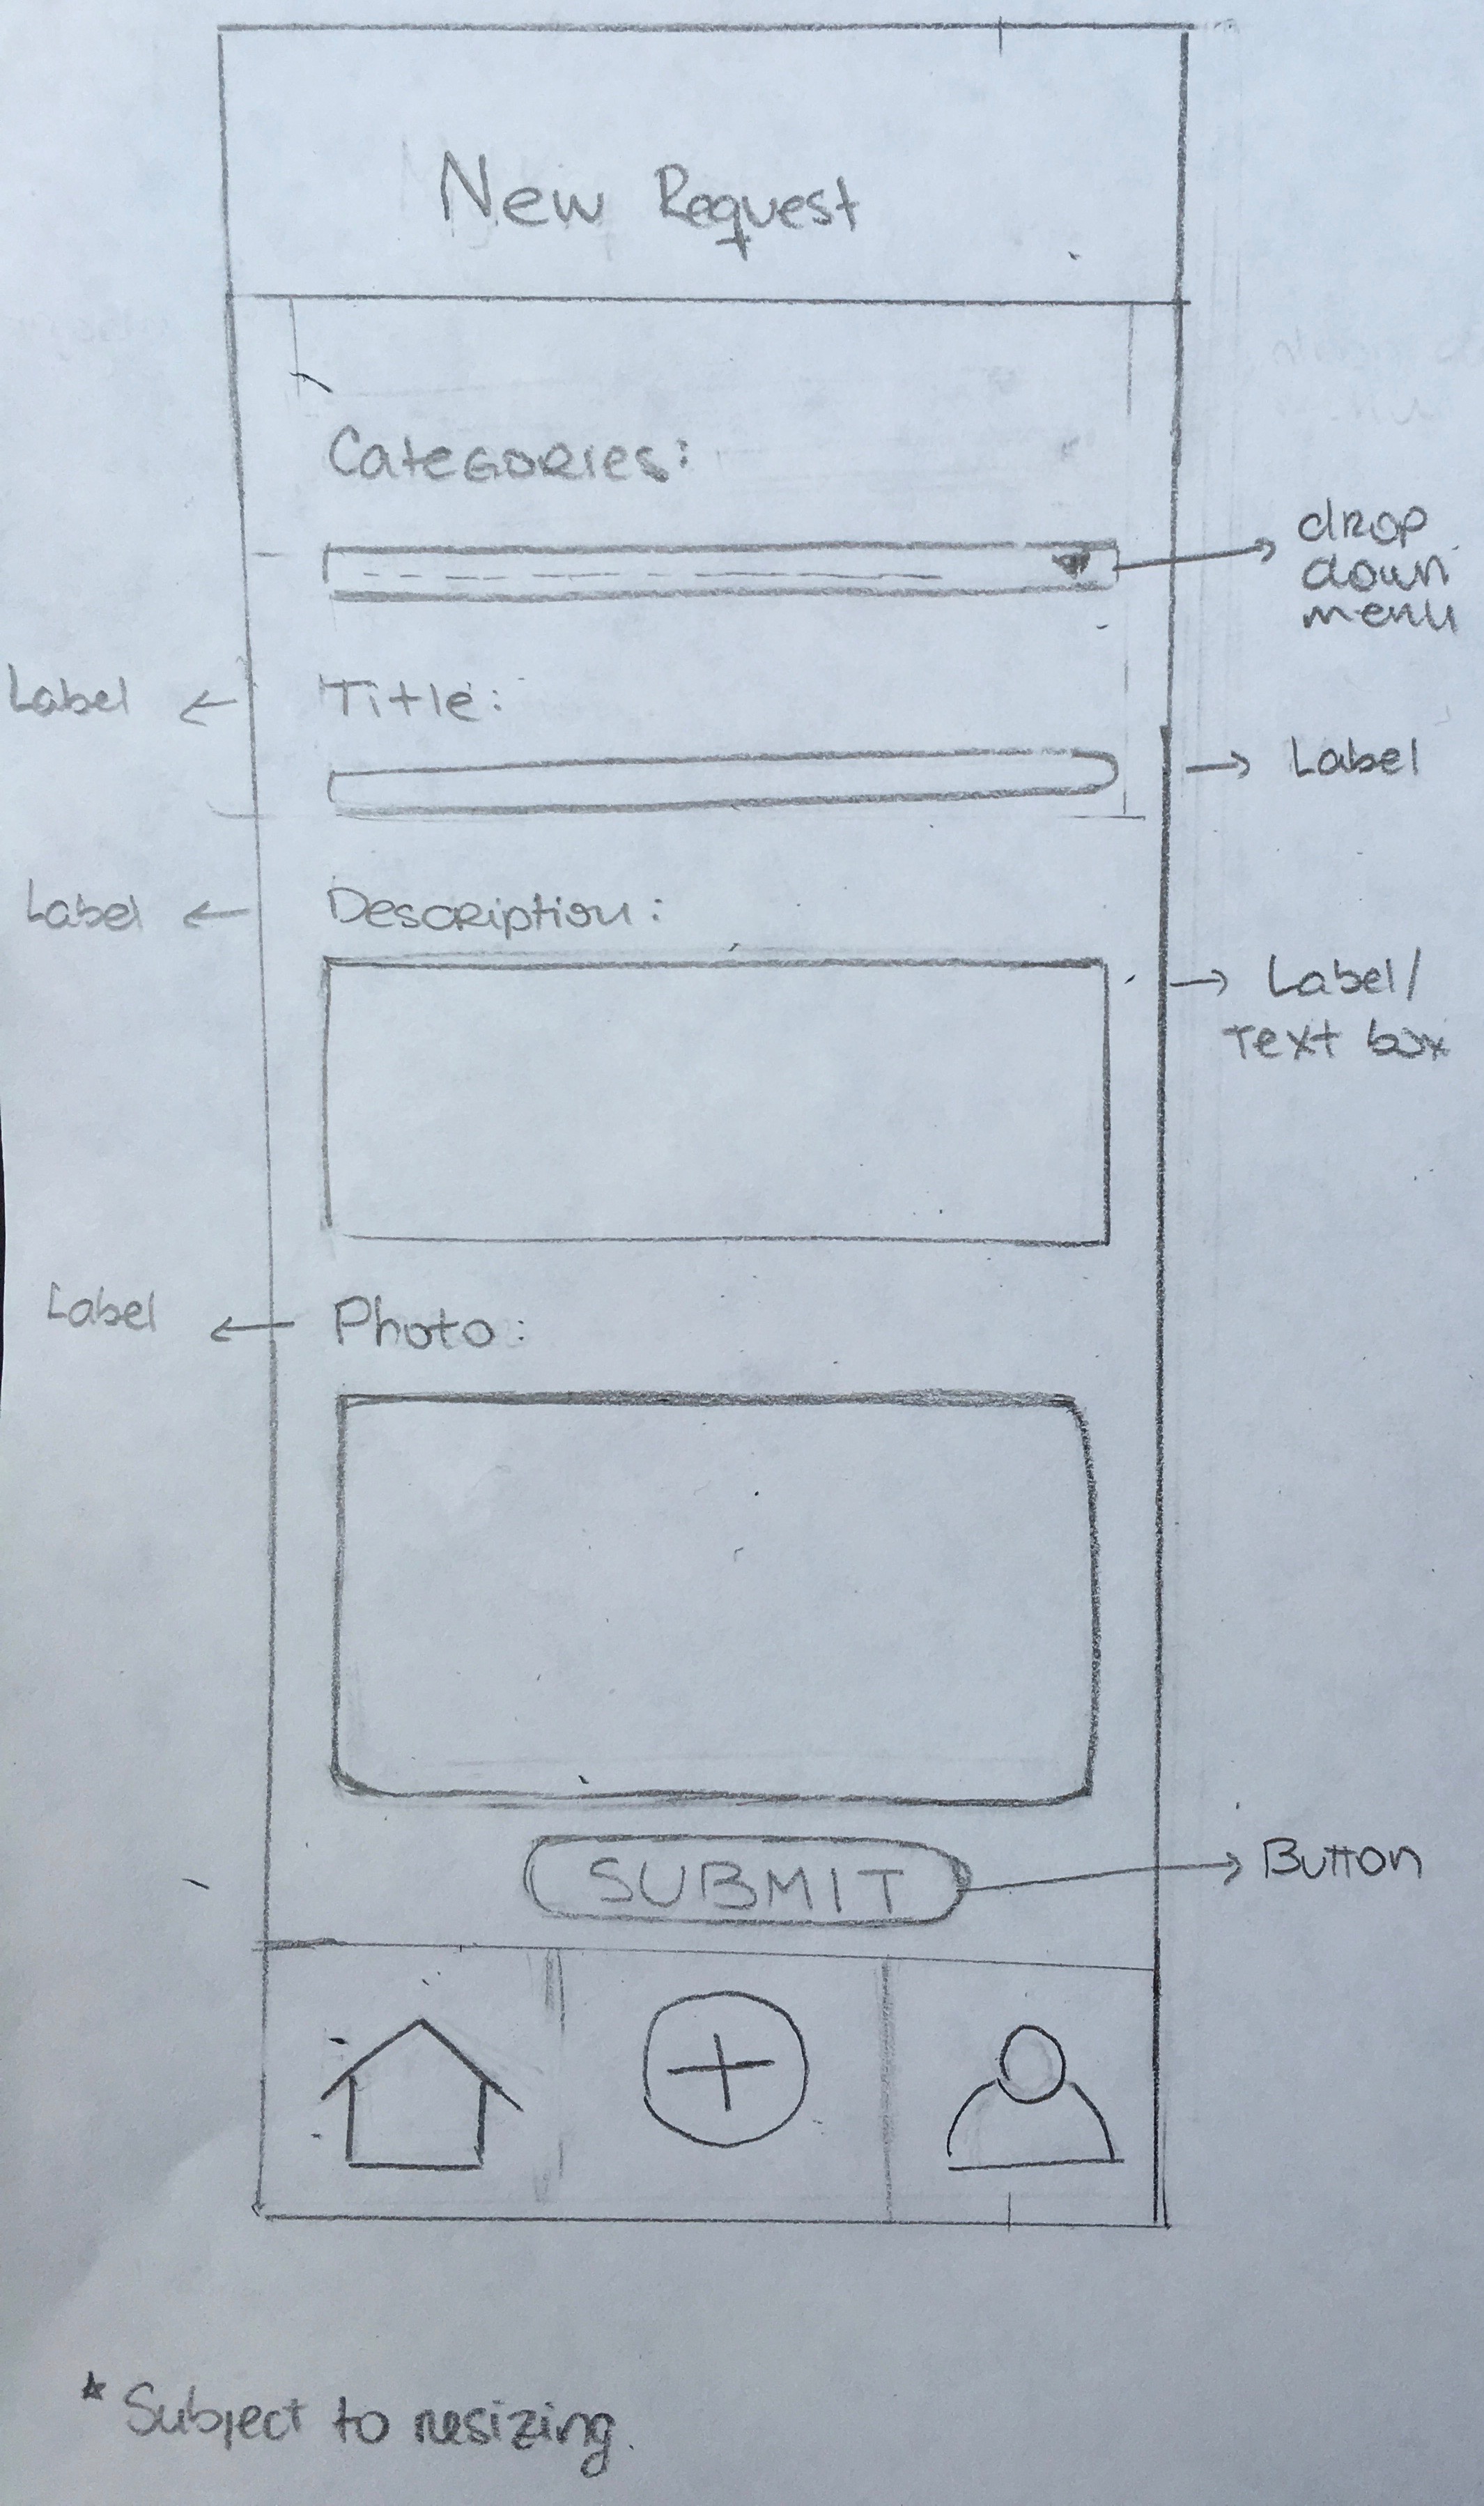 New Request
Categories:
drop
down
menu
Label
Title:
Label
Label
Description:
Label/
Text box
Label
Photo:
SUBMIT
Button
* Subject to resizing.